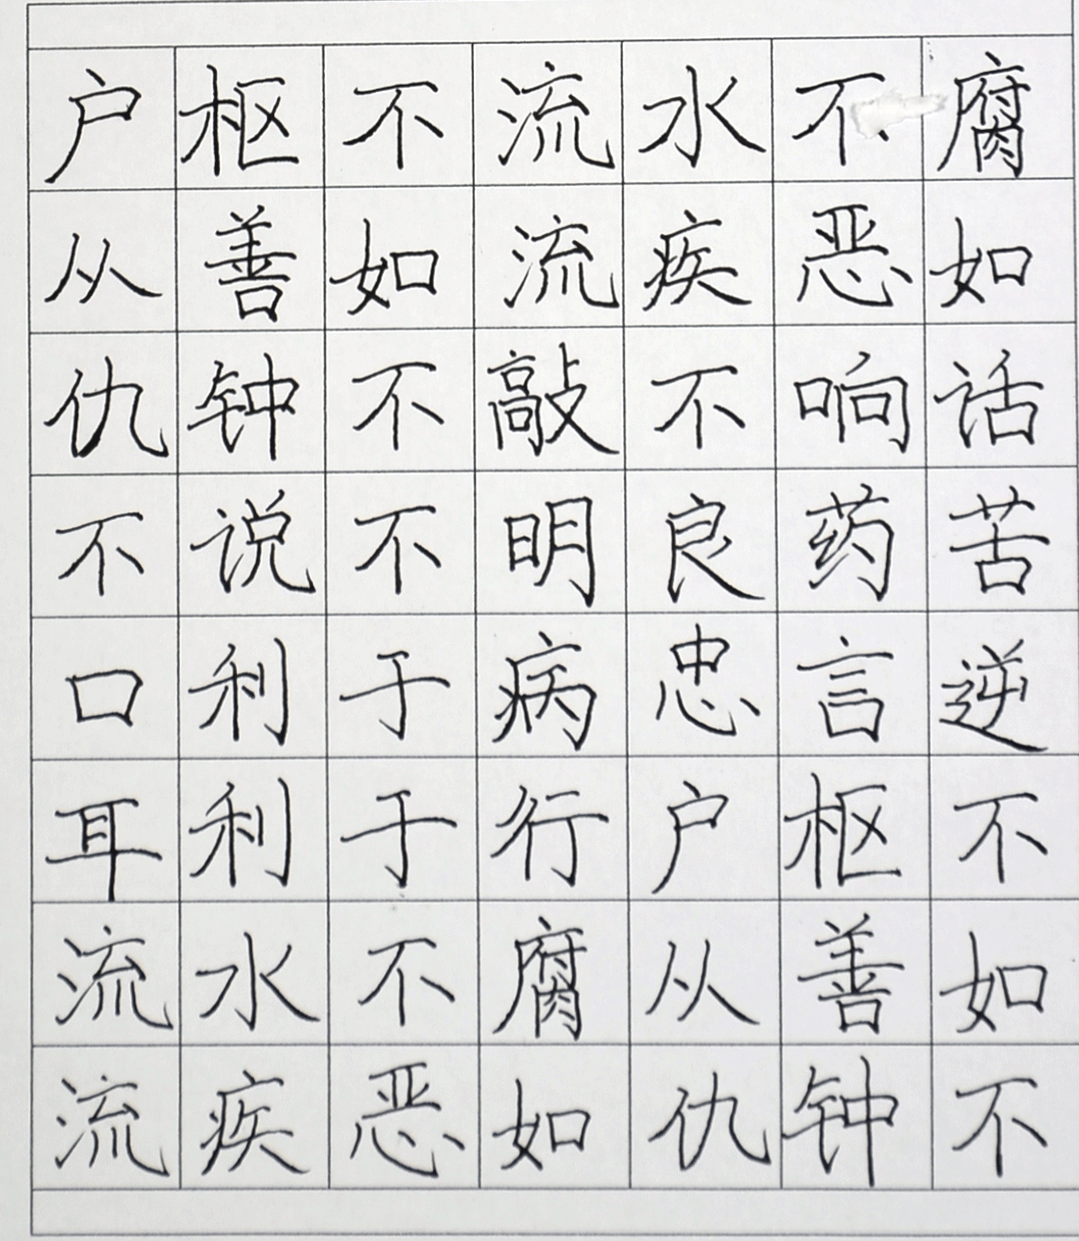 户枢不流水不腐
从善如流疾恶如
仇钟不敲不响话
不说不明良药苦
口利于病忠言逆
耳利于行户枢不
流水不腐从善如
流疾恶如仇钟不